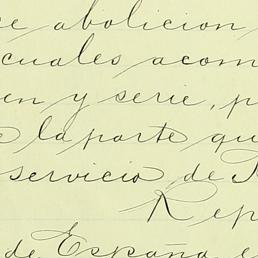 ce abolicion
cuales acom
en y serie, p
la parte qu
servicio de
Rep
de España e